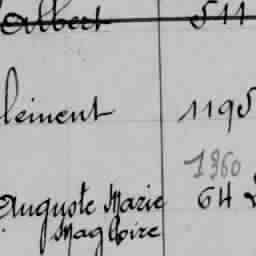 Albert 511
lement 1195
1960
Auguste Marie 64
Magloire